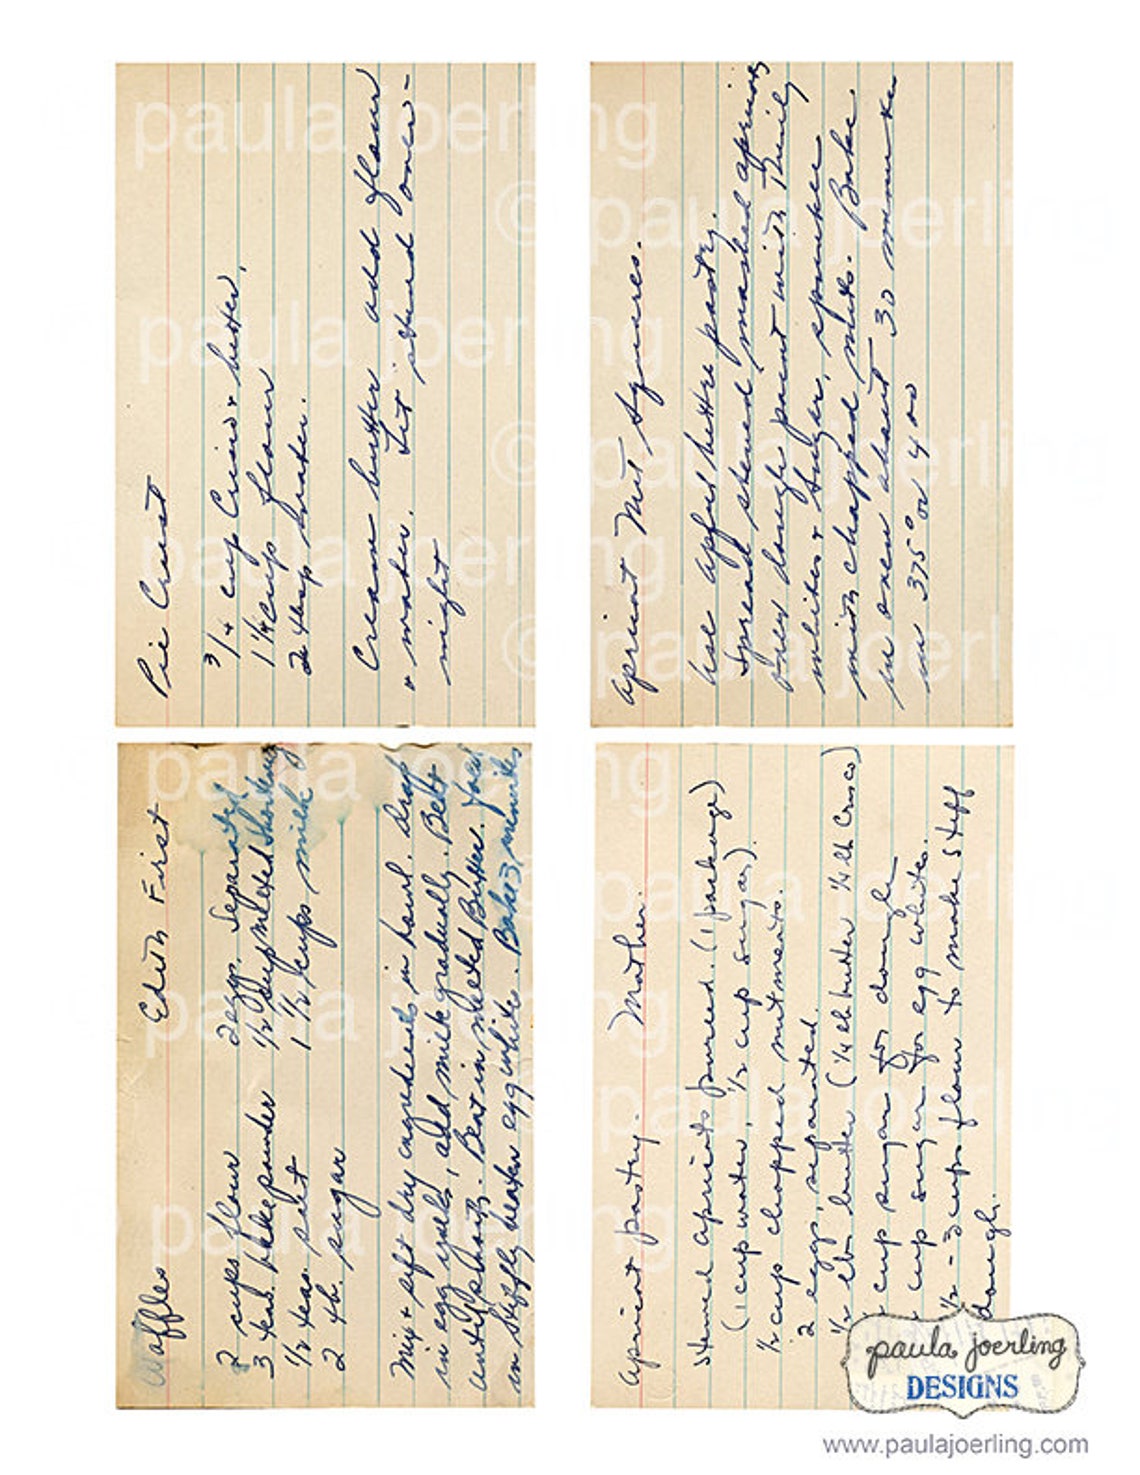 Pie Crust
3/4 cup Crisco + butter.
1 1/4 cup flour
2 tbsp water.
Cream butter add flour
+ water. Let stand over-
night
Apricot Nut Squares.
Use apful butter pastry.
Spread stewed mashed apricots
over dough paint with
whites + sugar, sprinkle
with chopped nuts. Bake
in oven about 30 minutes
in 375° or 400
Waffles Edith First
2 cups flour 2 eggs, separated
3 teas. bakepowder 1/2 cup melted shortening
1/2 teas. salt 1 1/2 cups milk
2 tb. sugar
Mix + sift dry ingredients in bowl. Drop
in egg yolks, add milk gradually. Beat
until smooth. Beat in melted Butter. Fold
in stiffly beaten egg white. Bake 3 minutes
Apricot pastry. Mother.
Stewed apricots pureed. (1 package)
(1 cup water, 1/2 cup sugar).
1/2 cup chopped nutmeats.
2 eggs, separated.
1/2 lb. butter (1/4 lb butter 1/4 lb Crisco)
cup sugar for dough
cup sugar for egg whites.
1/2 - 3 cups flour to make stiff
dough.
paula joerling
DESIGNS
www.paulajoerling.com
© paula joerling